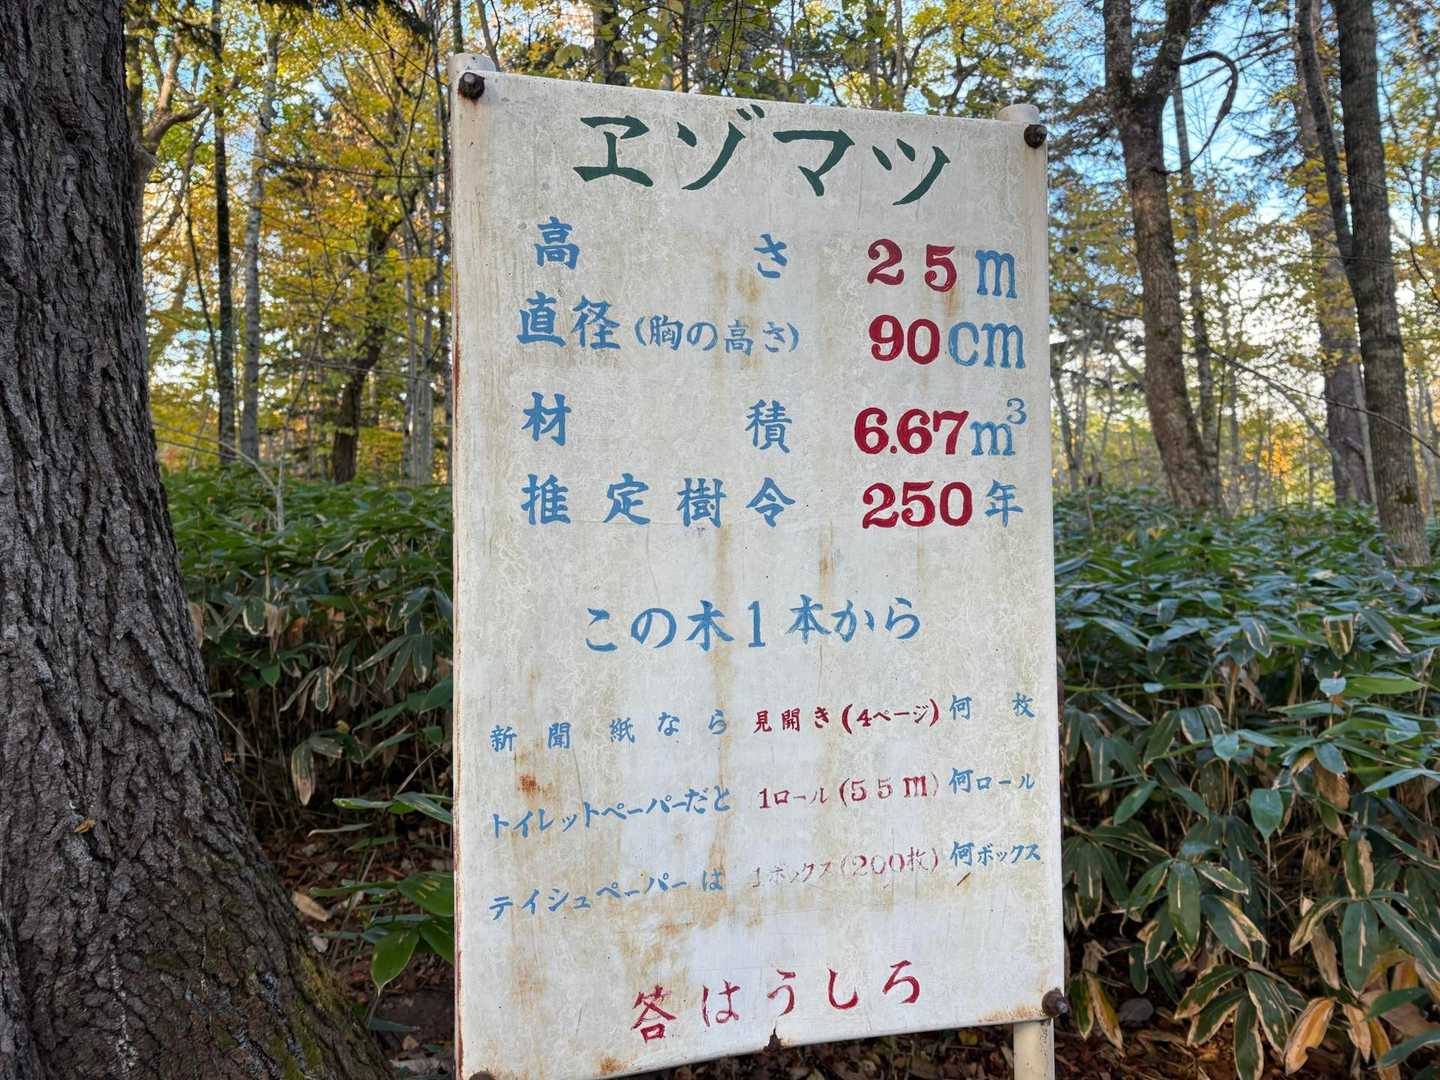 ヱゾマツ
高さ 25m
直径(胸の高さ) 90cm
材積 6.67m³
推定樹令 250年
この木1本から
新聞紙なら 見開き(4ページ) 何枚
トイレットペーパーだと 1ロール(55m) 何ロール
テイシュペーパーは 1ボックス(200枚) 何ボックス
答はうしろ